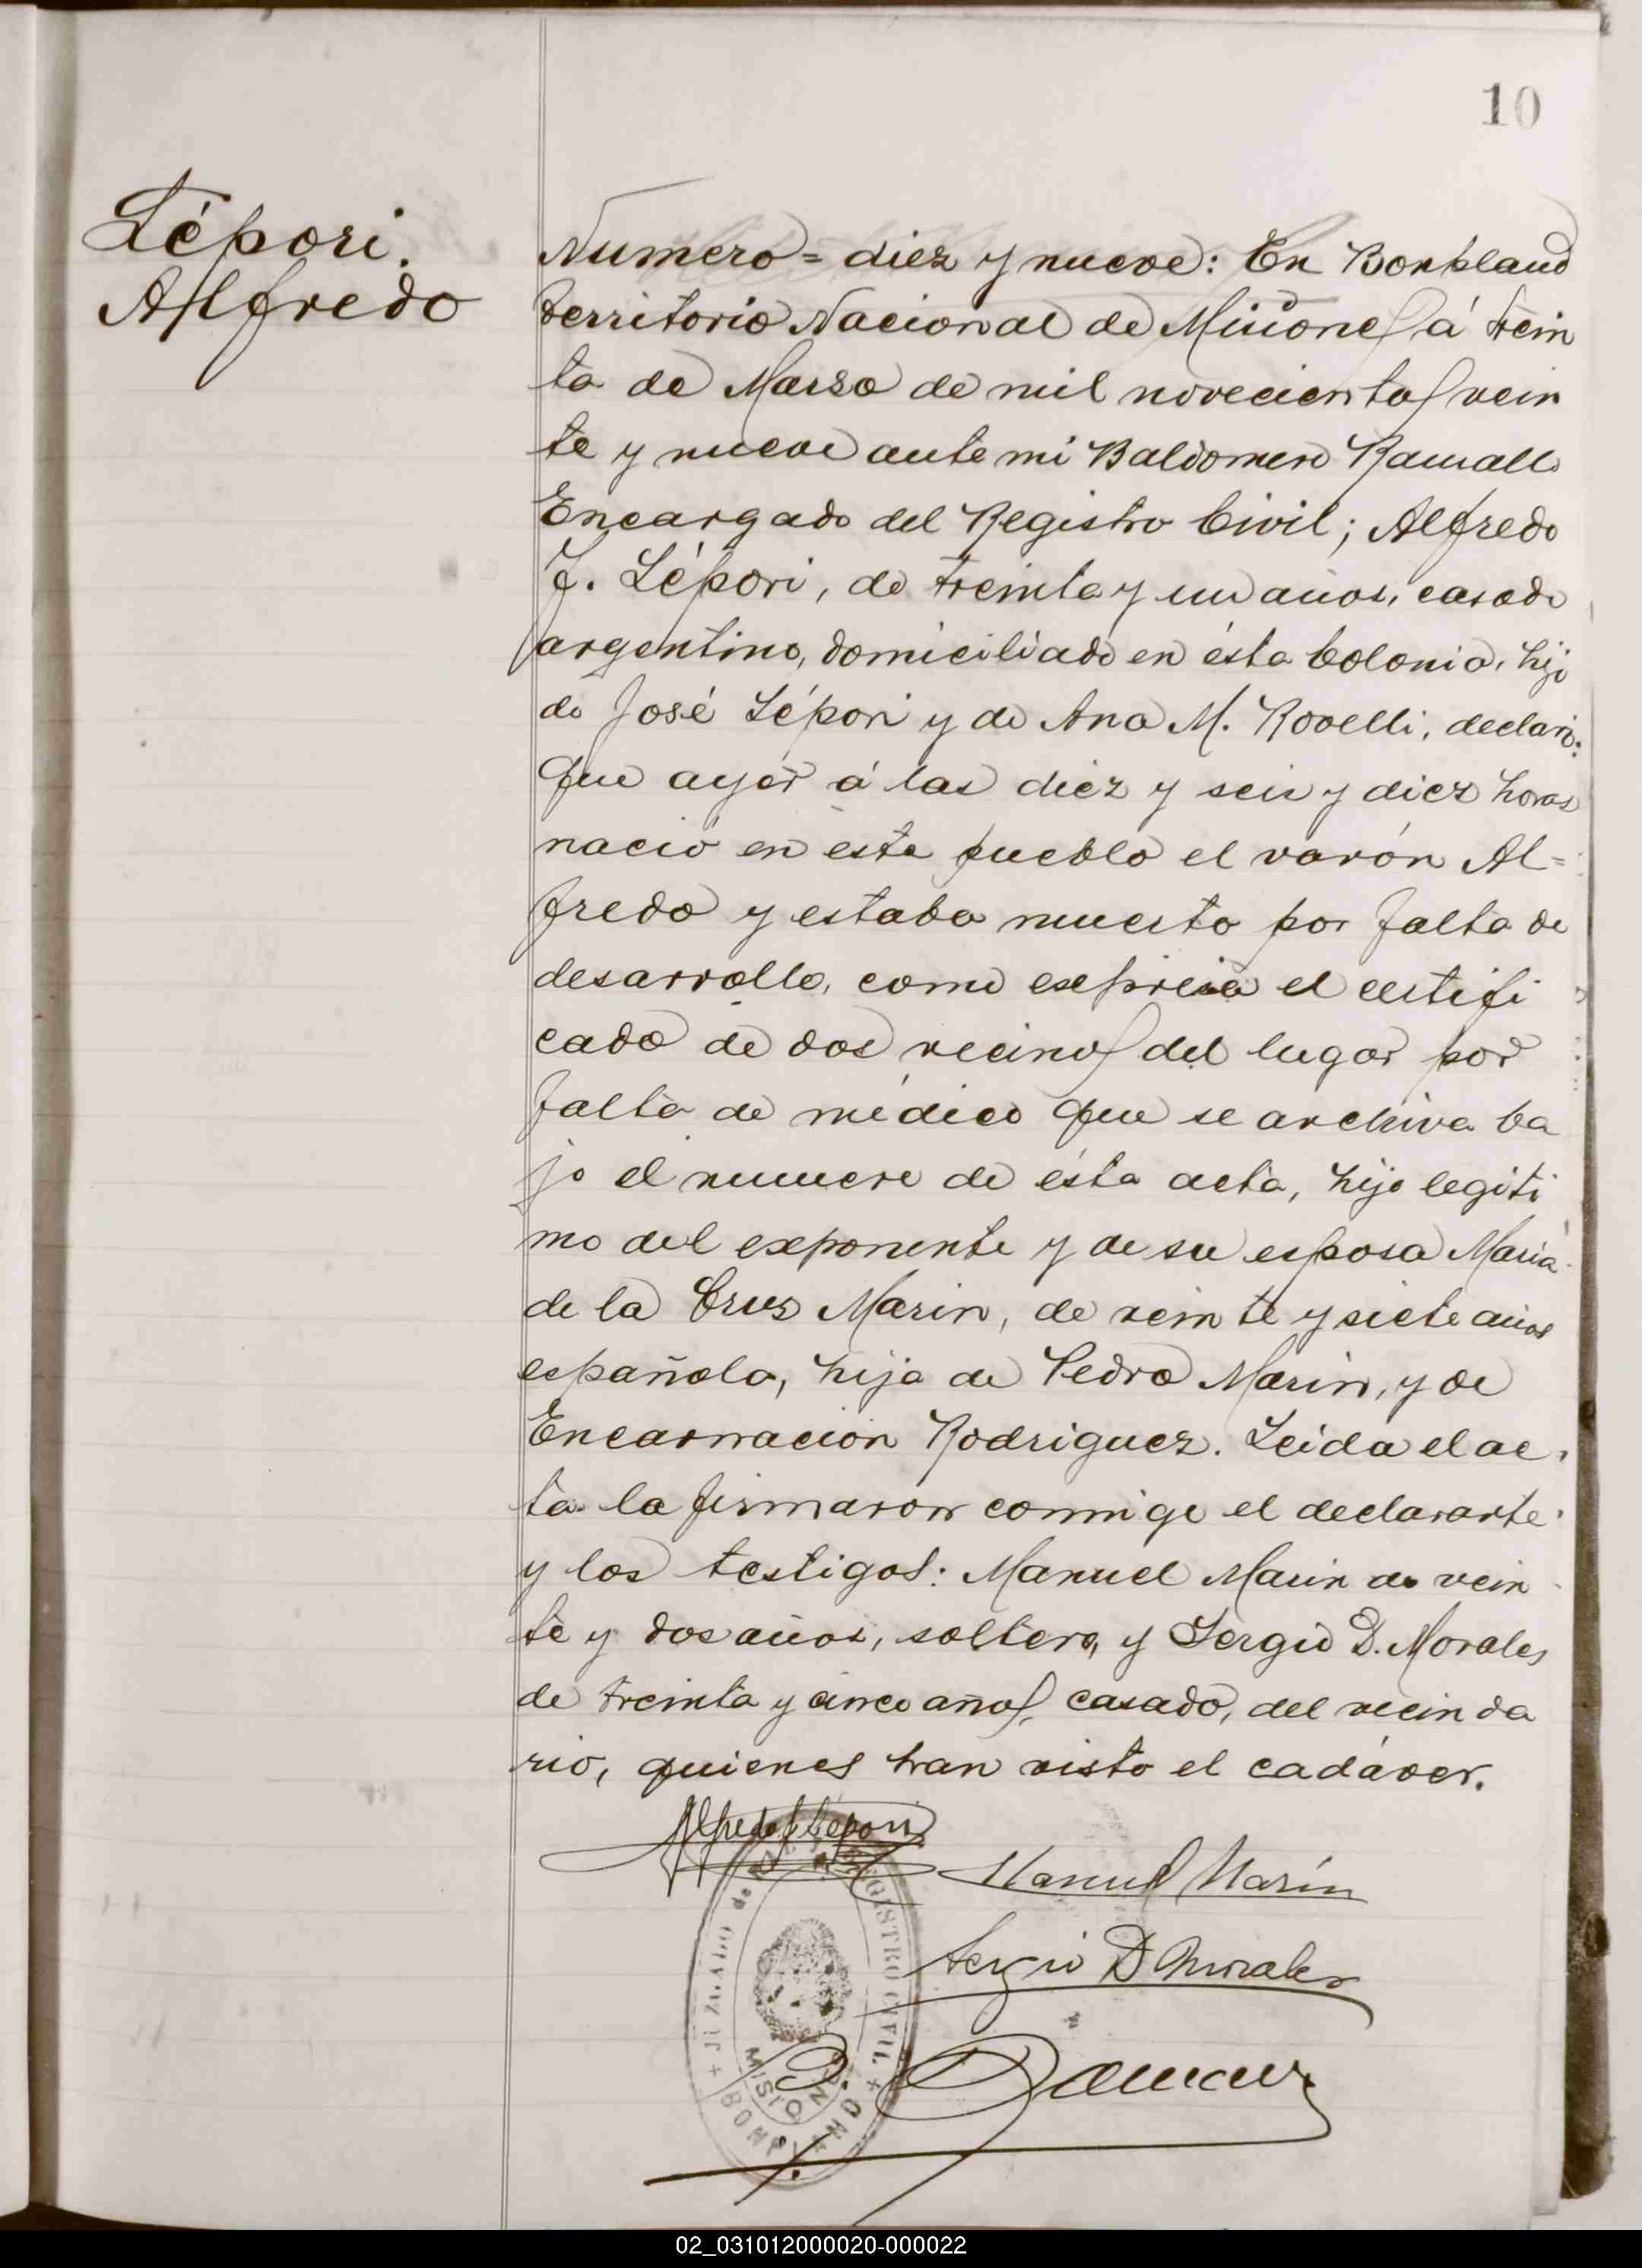 10
Lépori.
Alfredo
Numero = diez y nueve: En Bonpland
territorio Nacional de Misiones á trein
ta de Marzo de mil novecientos vein
te y nueve ante mi Baldomero Ramallo
Encargado del Registro Civil; Alfredo
J. Lépori, de treinta y un años, casado
argentino, domiciliado en ésta Colonia, hijo
de José Lépori y de Ana M. Rovelli, declaró:
Que ayer á las diez y seis y diez horas
nació en este pueblo el varón Al=
fredo y estaba muerto por falta de
desarrollo, como expresa el certifi
cado de dos vecinos del lugar por
falta de médico que se archiva ba
jo el numero de ésta acta, hijo legiti
mo del exponente y de su esposa María
de la Cruz Marin, de veinte y siete años
española, hija de Pedro Marin, y de
Encarnación Rodriguez. Leida el ac
ta la firmaron conmigo el declarante
y los testigos: Manuel Marin de vein
te y dos años, soltero, y Sergio D. Morales
de treinta y cinco años, casado, del vecinda
rio, quienes han visto el cadáver.
Alfredo J Lepori
Manuel Marín
Sergio D Morales
JUZGADO de PAZ REGISTRO CIVIL
MISIONES
BONPLAND
02_031012000020-000022